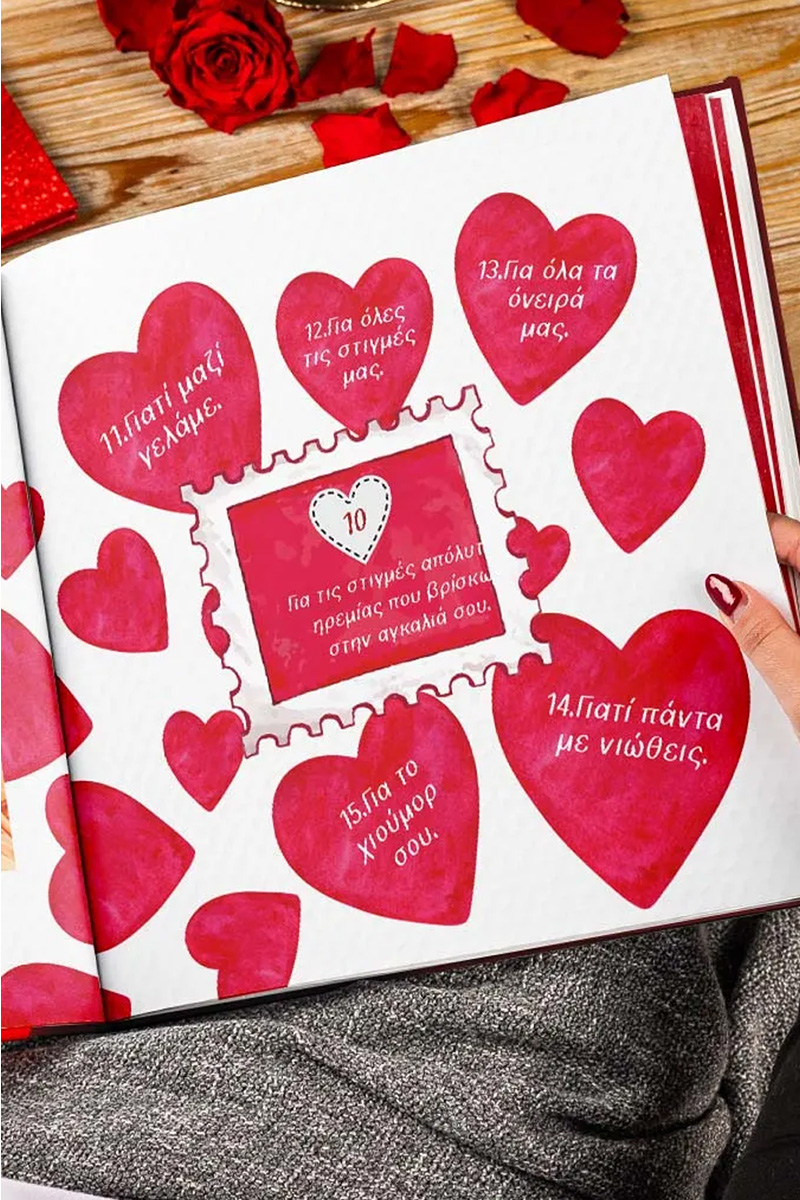 11.Γιατί μαζί
γελάμε.
12.Για όλες
τις στιγμές
μας.
13.Για όλα τα
όνειρά
μας.
10
Για τις στιγμές
ηρεμίας που
στην αγκαλιά σου.
14.Γιατί πάντα
με νιώθεις.
15.Για το
χιούμορ
σου.